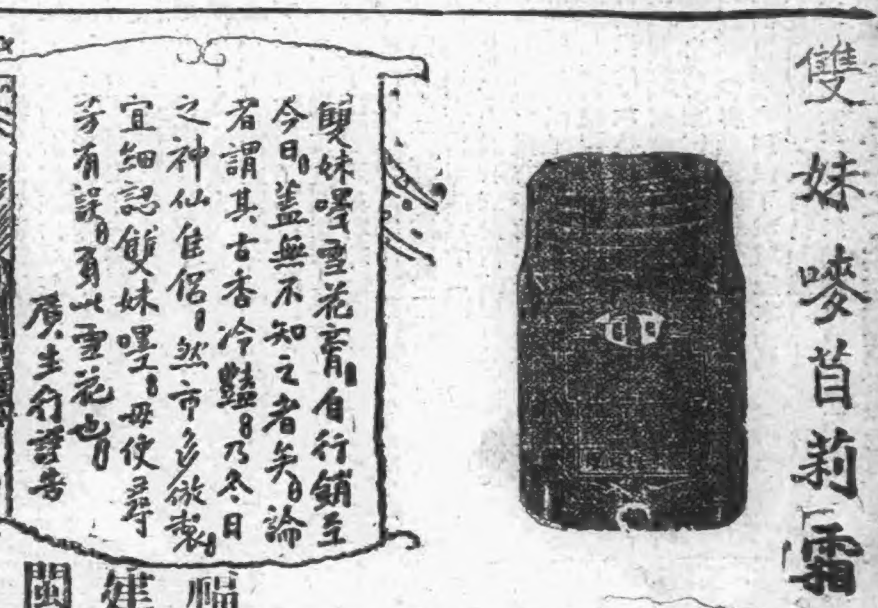 雙妹嘜苜莉霜
雙妹嘜雪花膏自行銷至
今日蓋無不知之者矣論
者謂其古香冷豔乃冬日
之神仙隹侶然市多倣製
宜細認雙妹嘜毋使尋
芳有誤負此雪花也
廣生行謹告
福建閩